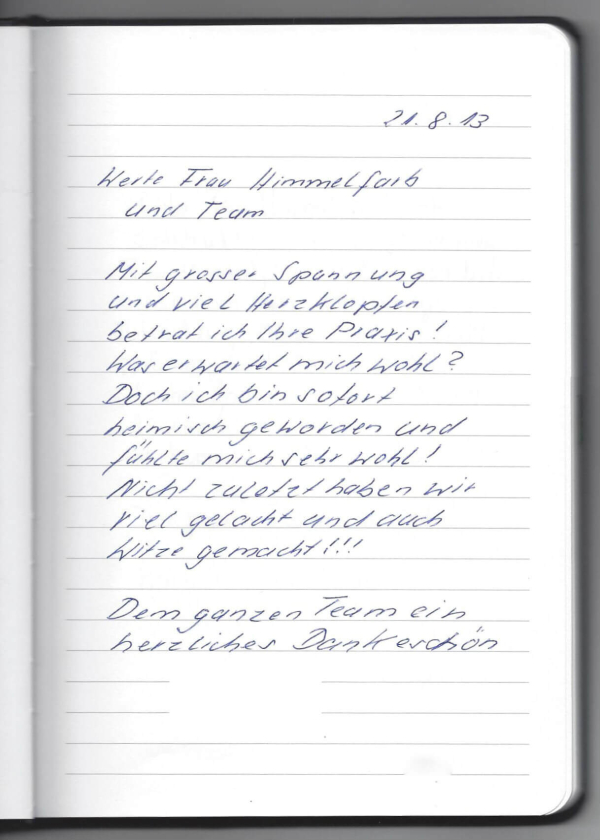 21.8.13
Werte Frau Himmelfarb
und Team
Mit grosser Spannung
und viel Herzklopfen
betrat ich Ihre Praxis!
Was erwartet mich wohl?
Doch ich bin sofort
heimisch geworden und
fühlte mich sehr wohl!
Nicht zuletzt haben wir
viel gelacht und auch
Witze gemacht!!!
Dem ganzen Team ein
herzliches Dankeschön